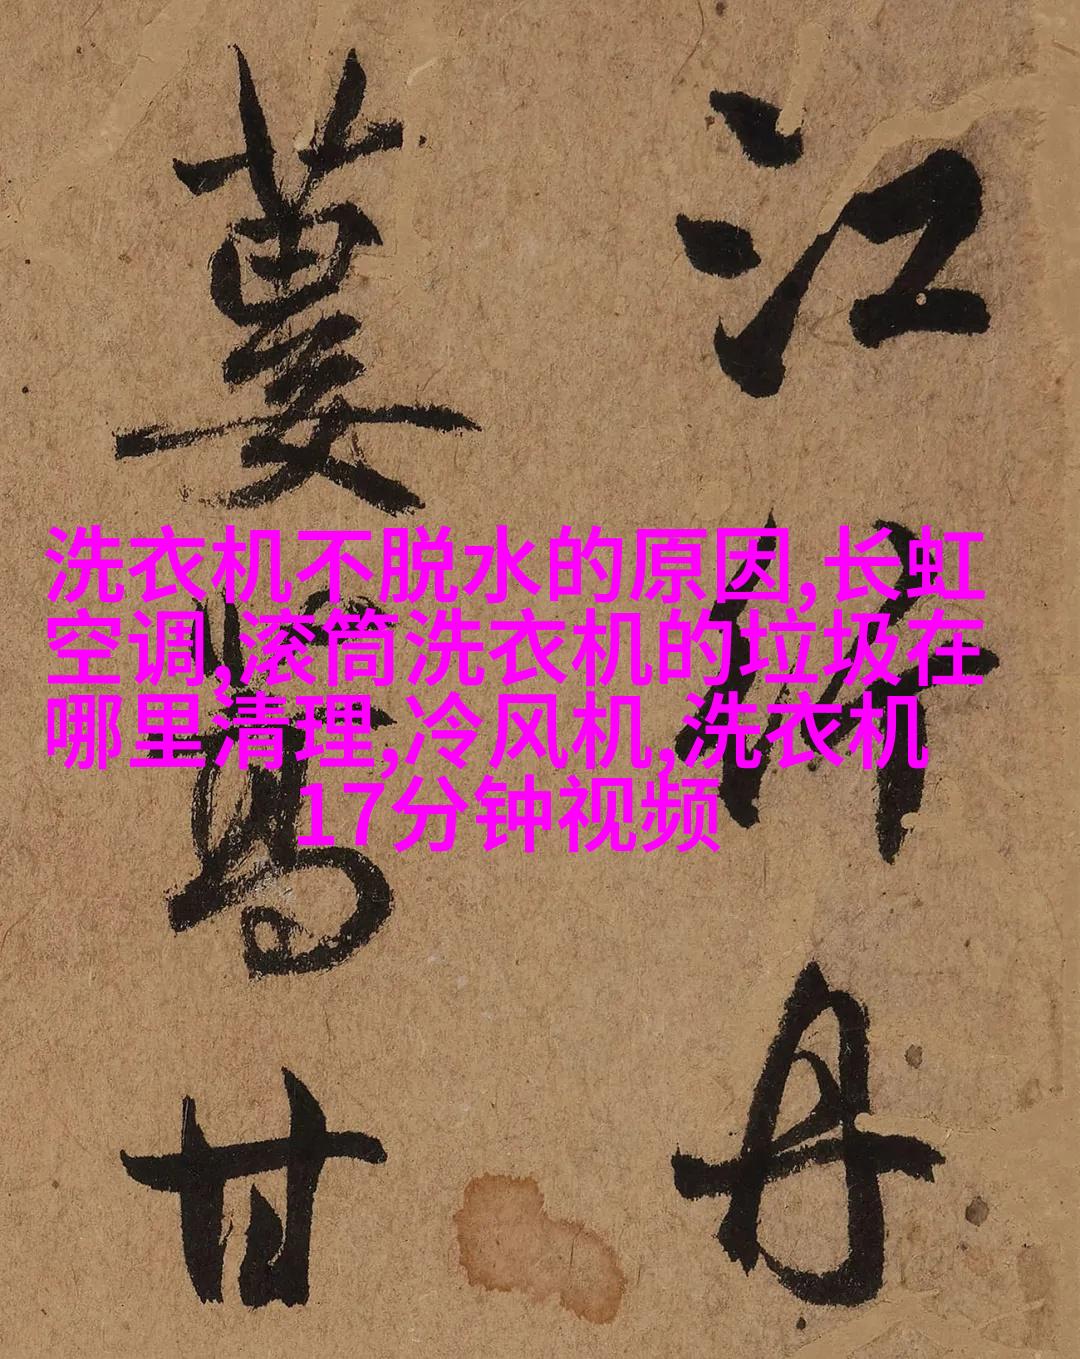 江竹丹
蔞蒿甘
洗衣机不脱水的原因,长虹
空调,滚筒洗衣机的垃圾在
哪里清理,冷风机,洗衣机
17分钟视频